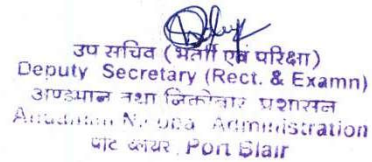 उप सचिव (भर्ती एवं परिक्षा)
Deputy Secretary (Rect. & Examn)
अण्डमान तथा निकोबार प्रशासन
Administration
पोर्ट ब्लेयर, Port Blair